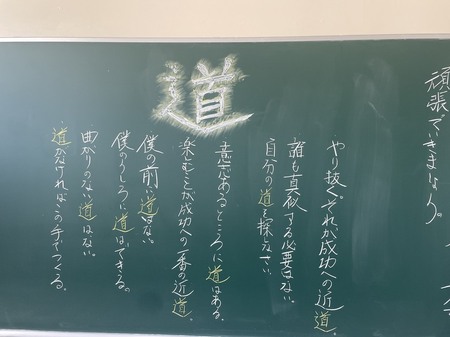 頑張っていきましょう。
道
やり抜く。それが成功への近道。
誰も真似する必要はない。
自分の道を探しなさい。
意志あるところに道はある。
楽しむことが成功への一番の近道。
僕の前に道はない
僕のうしろに道はできる。
曲がりのない道はない。
道がなければこの手でつくる。